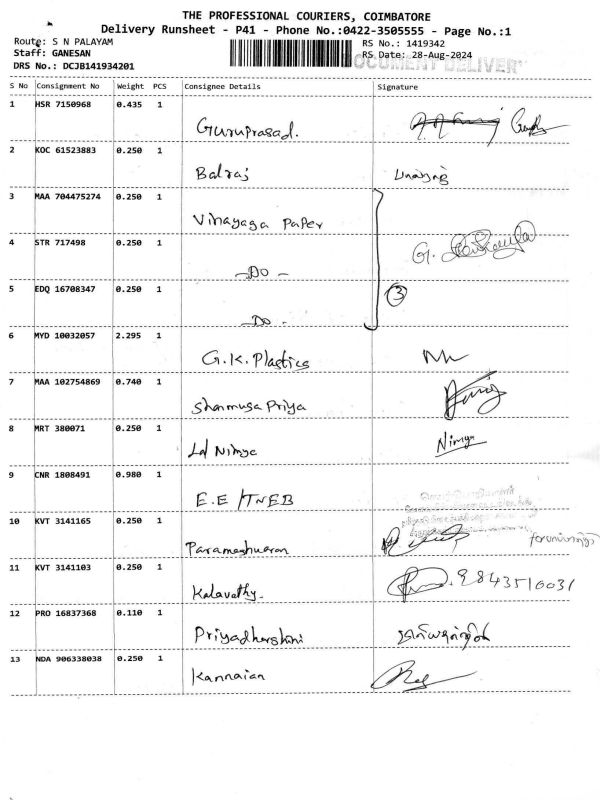 THE PROFESSIONAL COURIERS, COIMBATORE
Delivery Runsheet - P41 - Phone No.:0422-3505555 - Page No.:1
Route: S N PALAYAM RS No.: 1419342
Staff: GANESAN RS Date: 28-Aug-2024
DOCUMENT DELIVERY
DRS No.: DCJB141934201
S No Consignment No Weight PCS Consignee Details Signature
1 HSR 7150968 0.435 1
Guruprasad.
2 KOC 61523883 0.250 1
Balraj
3 MAA 704475274 0.250 1
Vinayaga Paper
4 STR 717498 0.250 1
-Do-
G.
5 EDQ 16708347 0.250 1
3
-Do-
6 MYD 10032057 2.295 1
G.K. Plastics
7 MAA 102754869 0.740 1
Shanmuga Priya
8 MRT 380071 0.250 1
Lal Nimya Nimya
9 CNR 1808491 0.980 1
E.E /TNEB
10 KVT 3141165 0.250 1
Parameshwaran
11 KVT 3141103 0.250 1
Kalavathy. 9843510031
12 PRO 16837368 0.110 1
Priyadharshini
13 NDA 906338038 0.250 1
Kannaian